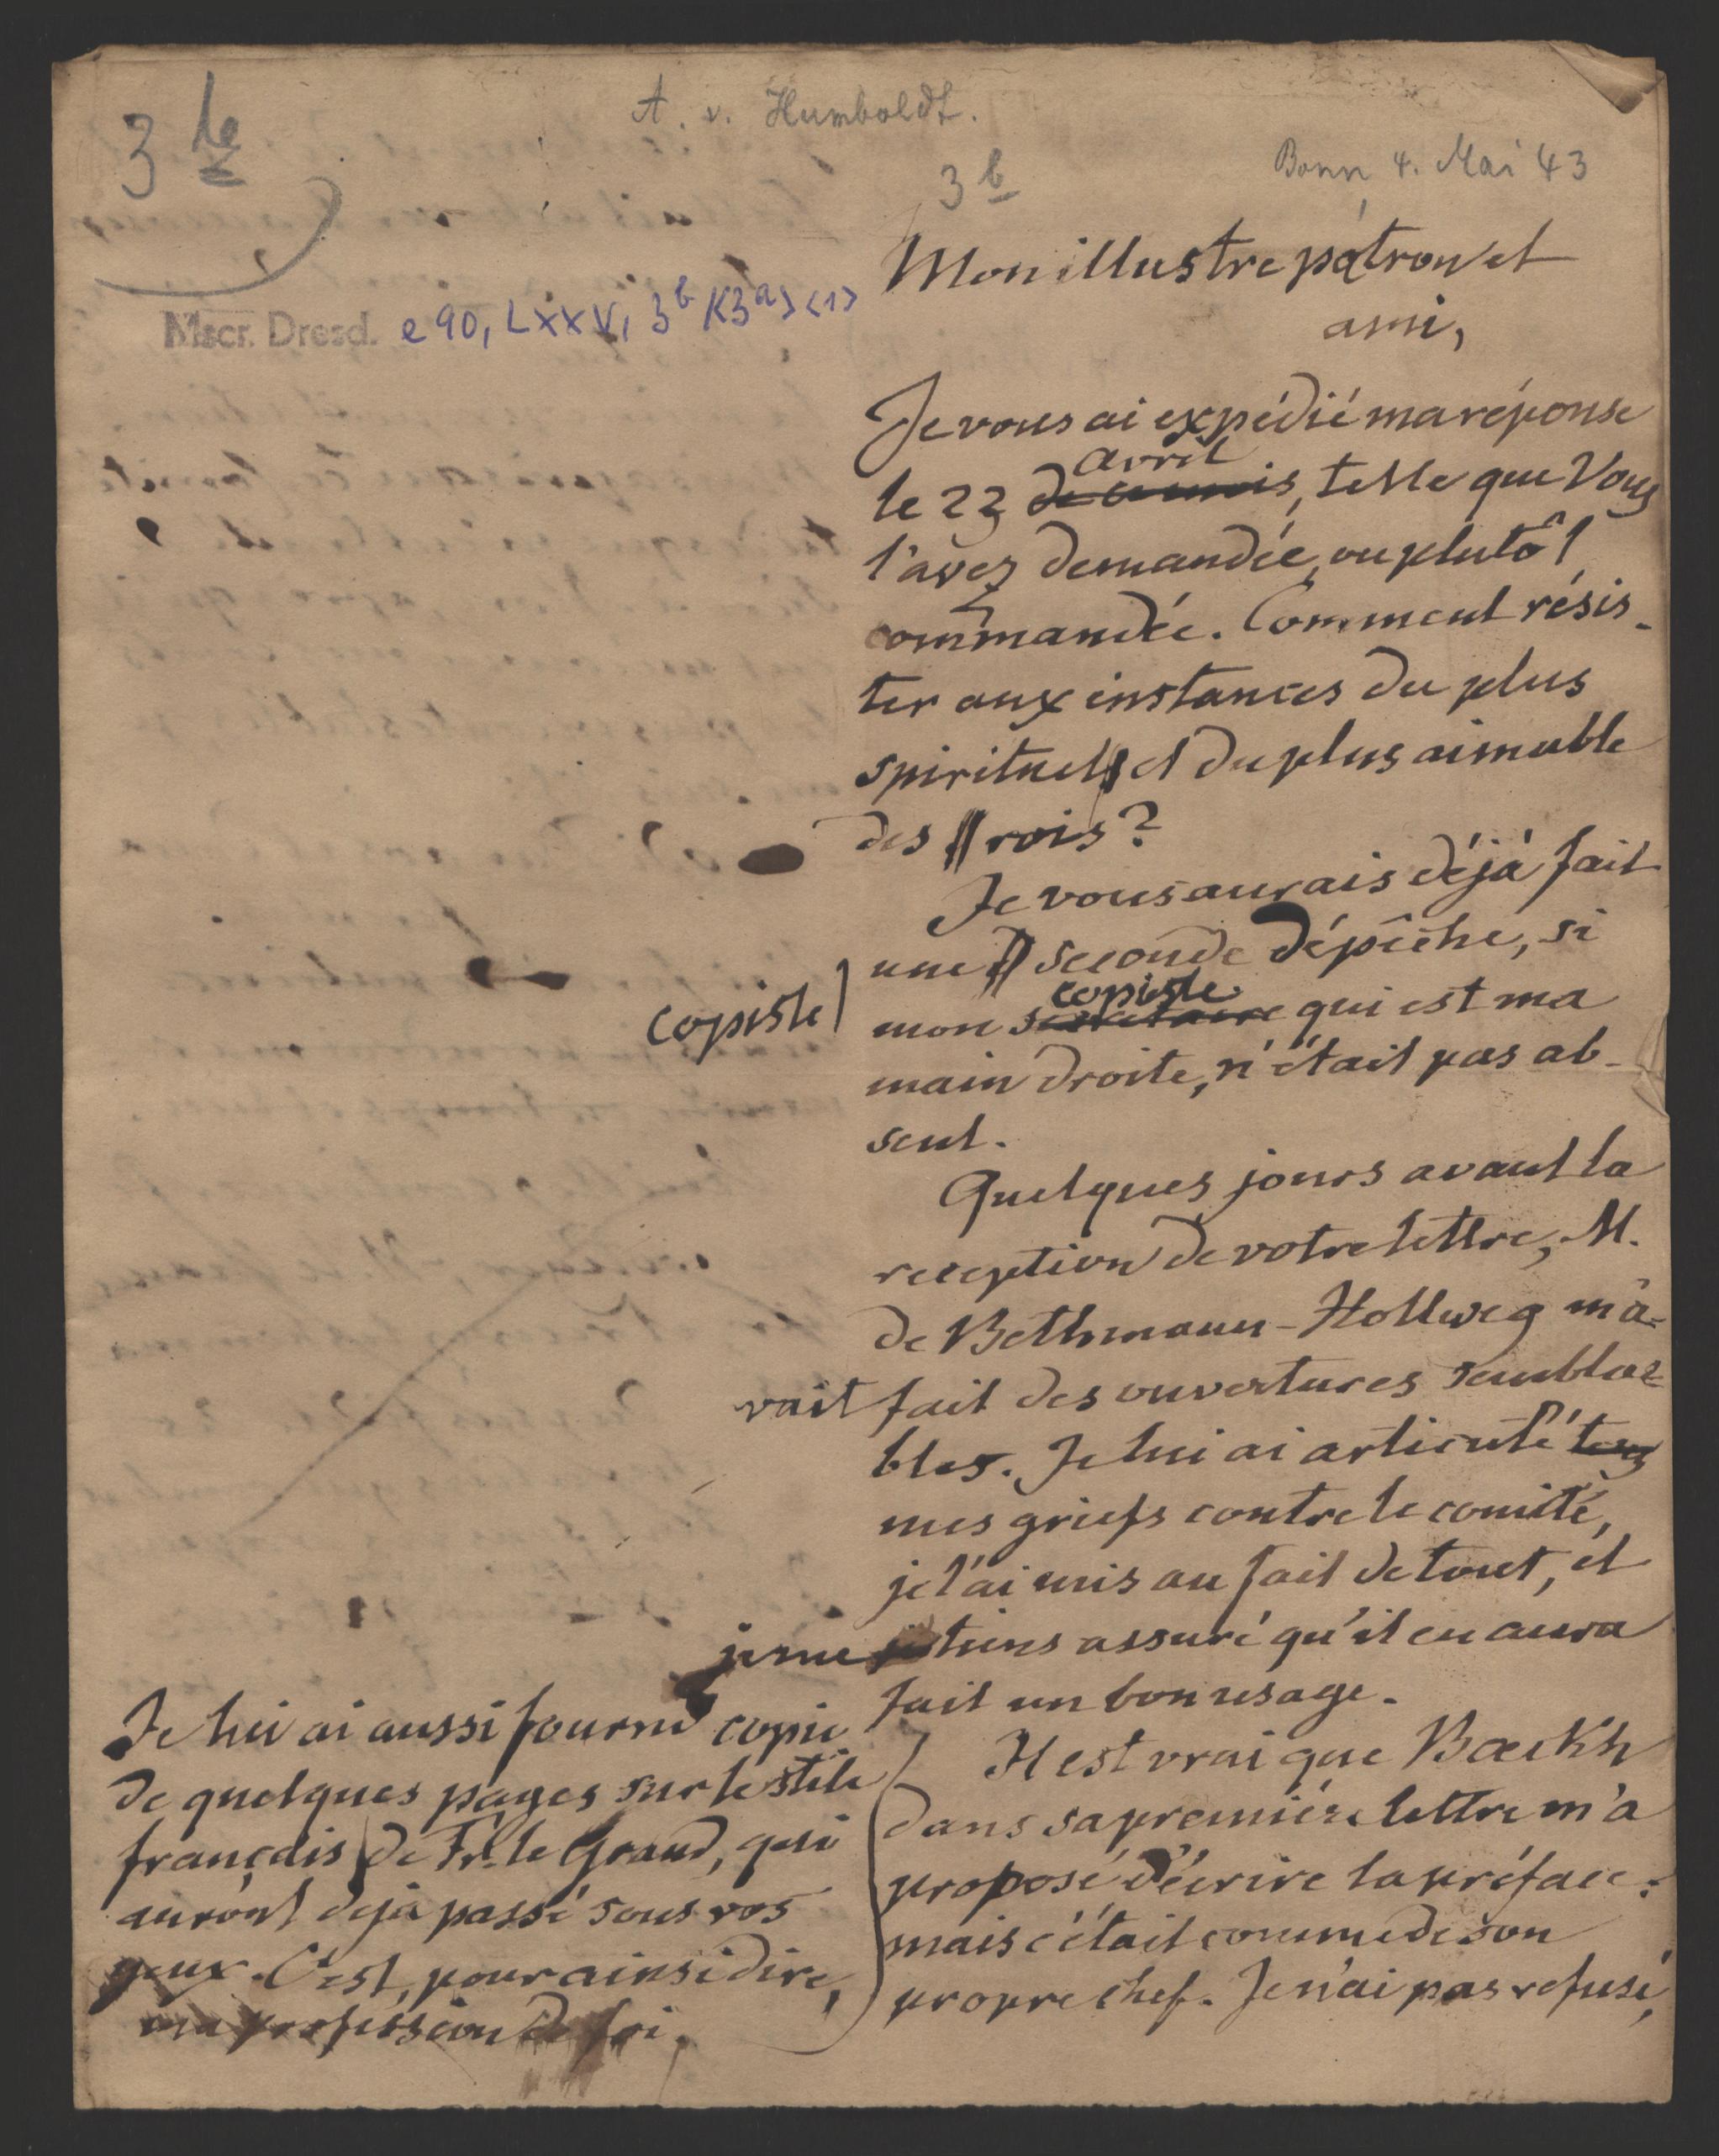 3 b
A. v. Humboldt.
3 b
Bonn, 4. Mai 43
Mscr. Dresd. e 90, LXXV, 3b K3a) (1)
Mon illustre patron et
ami,
Je vous ai expédié ma réponse
avril
le 22 de ce mois, telle que Vous
l'avez demandée, ou plutôt
commandée. Comment résis-
ter aux instances du plus
spirituel et du plus aimable
des rois?
Je vous aurais déjà fait
une seconde dépêche, si
copiste
copiste
mon secretaire qui est ma
main droite, n'était pas ab-
sent.
Quelques jours avant la
reception de votre lettre, M.
de Bethmann-Hollweg m'a-
vait fait des ouvertures sembla-
bles. Je lui ai articulé tous
mes griefs contre le comité,
je l'ai mis au fait de tout, et
je me tiens assuré qu'il en aura
fait un bon usage.
Je lui ai aussi fourni copie
de quelques pages sur le stile
français de Fr. le Grand, qui
auront deja passé sous vos
yeux. C'est, pour ainsi dire,
ma profession de foi.
Il est vrai que Bœckh
dans sa première lettre m'a
proposé d'écrire la préface:
mais c'était comme de son
propre chef. Je n'ai pas refusé,